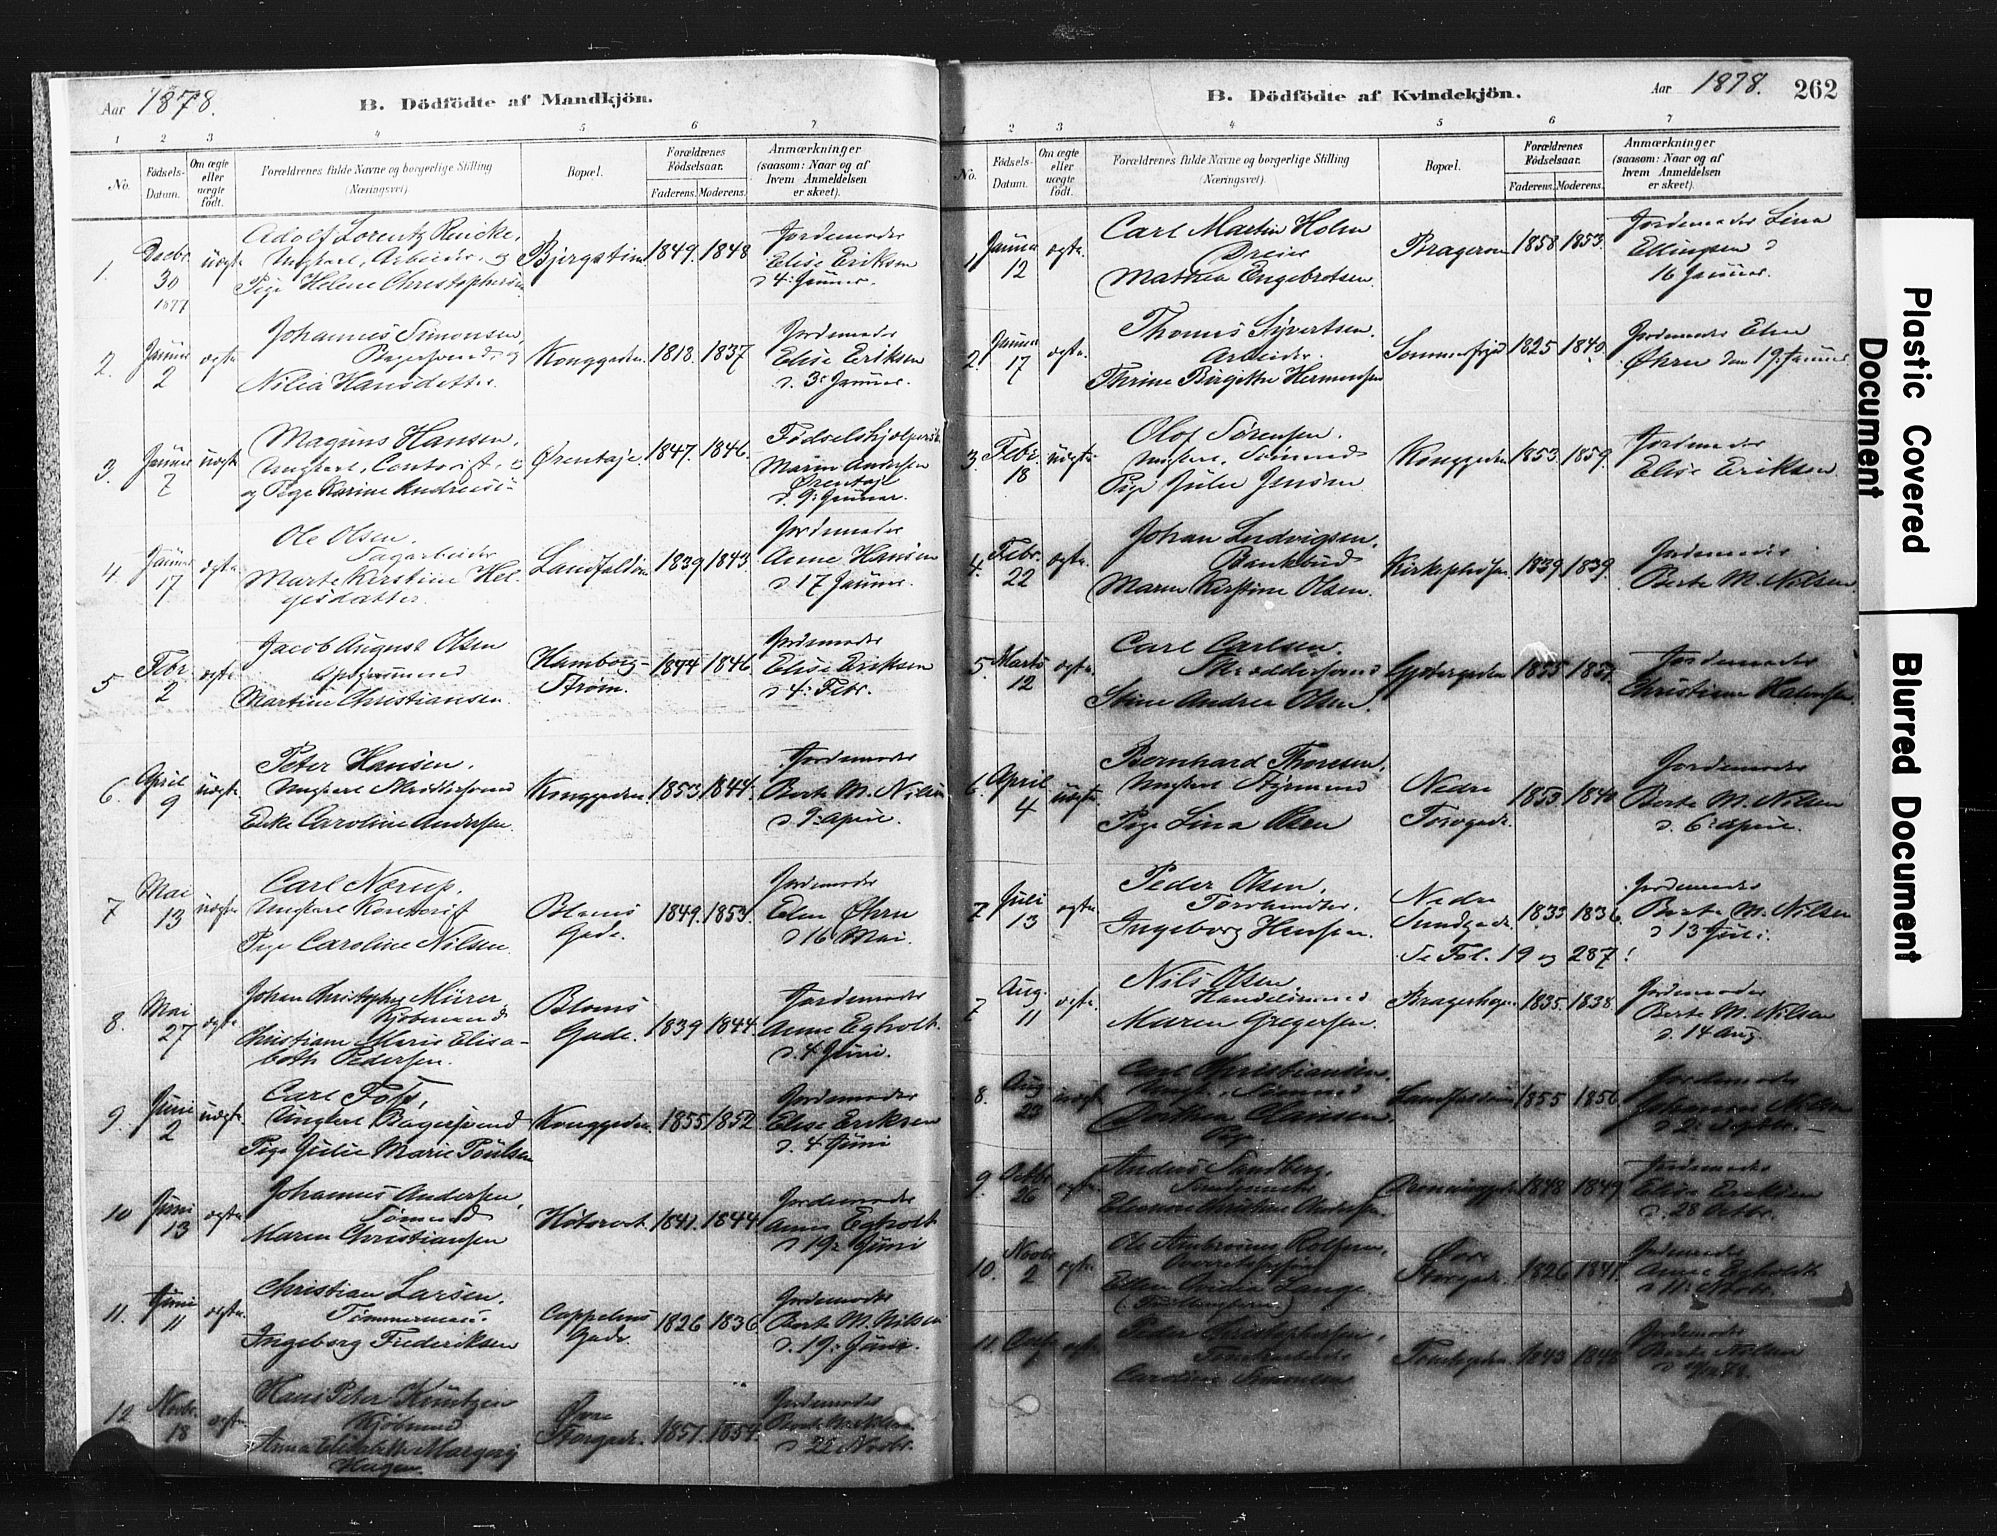 Aar 1878.
B. Dödfödte af Mandkjön.
1 2 3 4 5 6 7
No.
Födsels-
Datum.
Om ægte
eller
uægte
födt.
Forældrenes fulde Navne og borgerlige Stilling
(Næringsvei).
Bopæl.
Forældrenes
Fødselsaar.
Faderens. Moderens.
Anmærkninger
(saasom: Naar og af
hvem Anmeldelsen
er skeet).
1.
Decbr.
30
1877
uægte
Adolf Lorentz Reincke,
Ungkarl, Arbeider, og
Pige Helene Christophersen
1849. 1848
Jordemoder
Elise Eriksen
d 4: Januar.
2.
Januar
2
ægte
Johannes Simonsen,
Bagersvend og
Hansdatter
Konggaden
1813. 1837
Jordemoder
Elise Eriksen
d. 3: Januar.
3.
Januar
7
uægte
Magnus Hansen,
Ungkarl, Contorist,
og Pige Karine
1847. 1846.
Maren Andersen
d. 9: Januar.
4.
Januar
17
ægte
Ole Olsen.
Sagarbeider
Marte Kirstine Hel-
gesdatter.
1839 1843
Jordemoder
Anne Hansen
d 17 Januar.
5
Febr.
2
ægte
Jacob August Olsen
Martine Christiansen.
Hamborg-
Strøm.
1844 1846.
Jordemoder
Elise Eriksen
d 4: Febr.
6.
April
9
uægte
Peter Hansen.
Ungkarl
Caroline Andersen.
Konggaden
1853 1844.
Jordemoder
Berte M. Nilsen
d 9: April.
7
Mai
13
uægte
Carl Nørup.
Ungkarl Kontorist
Pige Caroline Nilsen.
Bloms
Gade.
1849. 1853.
Jordemoder
Elen Øhrn
d 16 Mai.
8.
Mai
27
ægte
Johan Christopher Mürer,
Kjøbmand
Christiane Marie Elisa-
beth Pedersen.
Bloms
Gade.
1839 1844.
Jordemoder
Anne Egholt.
d. 4 Juni.
9.
Juni
2
uægte
Carl Foss,
Ungkarl Bagersvend
Pige Julie Marie Poulsen
Konggaden.
1855 1852
Jordemoder
Elise Eriksen
d. 4 Juni
10
Juni
13
ægte
Johannes Andersen,
Sømand
Maren Christiansen
1841. 1844
Jordemoder
Anne Egholt
d 19: Juni
11.
Juni
11
ægte
Christian Larsen.
Tømmermand
Ingeborg Frederiksen
Cappelens
Gade
1826 1836
Jordemoder
Berte M. Nilsen
d. 19: Juni.
12
Novbr.
18
ægte
Hans Peter
Kjøbmand
Anna Elisabeth
Hagen.
Øvre
Storgade.
1851. 1854.
Jordemoder
Berte M. Nilsen
d 22 Novbr.
B. Dödfödte af Kvindekjön.
Aar 1878.
262
1 2 3 4 5 6 7
No.
Födsels-
Datum.
Om ægte
eller
uægte
födt.
Forældrenes fulde Navne og borgerlige Stilling
(Næringsvei).
Bopæl.
Forældrenes
Fødselsaar.
Faderens. Moderens.
Anmærkninger
(saasom: Naar og af
hvem Anmeldelsen
er skeet).
1.
Januar
12
ægte.
Carl Martin Holm
Dreier
Mathea Engebretsen.
1858 1853.
Jordemoder Lina
Ellingsen d
16 Januar.
2.
Januar
17
ægte.
Thomas Syvertsen.
Arbeider.
Thrine Birgitte Hermansen
1825 1840.
Jordemoder Elen
Øhrn den 19: Januar
3.
Febr.
18
uægte
Olof Sørensen.
Ungkarl, Sømand
Pige Julie Jensen
Konggaden
1853. 1859.
Jordemoder
Elise Eriksen
4.
Febr.
22
ægte.
Johan Ludvigsen.
Bankbud
Maren Kirstine Olsen.
1839 1839.
Jordemoder
Berte M. Nilsen
5.
Marts
12
ægte.
Carl Carlsen.
Skræddersvend
Stine Andrea Olsen.
1855
Jordemoder
Christiane
6.
April
4
uægte
Bernhard Thoresen,
Ungkarl Styrmand
Pige Lina Olsen
Nedre
Torvgade.
1853. 1840
Jordemoder
Berte M. Nilsen
d. 6: April.
7
Juli
13
ægte.
Peder Olsen.
Ingeborg Hansen.
Nedre
Strandgade
Se Fol. 19 og 287!
1833 1836.
Jordemoder
Berte M. Nilsen
d 13 Juli.
7
Aug.
11
ægte.
Nils Olsen
Handelsmand
Maren Gregersen.
1835. 1838.
Jordemoder
Berte M. Nilsen
d. 14 Aug.
8.
Aug.
23
uægte
Carl Christiansen.
Ungk., Sømand
Hansen,
Pige
1855 1856
Jordemoder
Nilsen
d 2: Septbr.
9.
Octbr.
26
ægte
Anders Sandberg,
Christine
1848 1849
Jordemoder
Elise Eriksen
d. 28 Octbr.
10.
Novbr.
2
ægte.
Ole Ambrosius
Lange
Øvre
Storgade.
1826 1841.
Jordemoder
Anne Egholdt
d 11: Novbr.
11.
Peder
Caroline Simonsen
1843
Jordemoder
Berte Nilsen
Plastic Covered
Document
Blurred Document